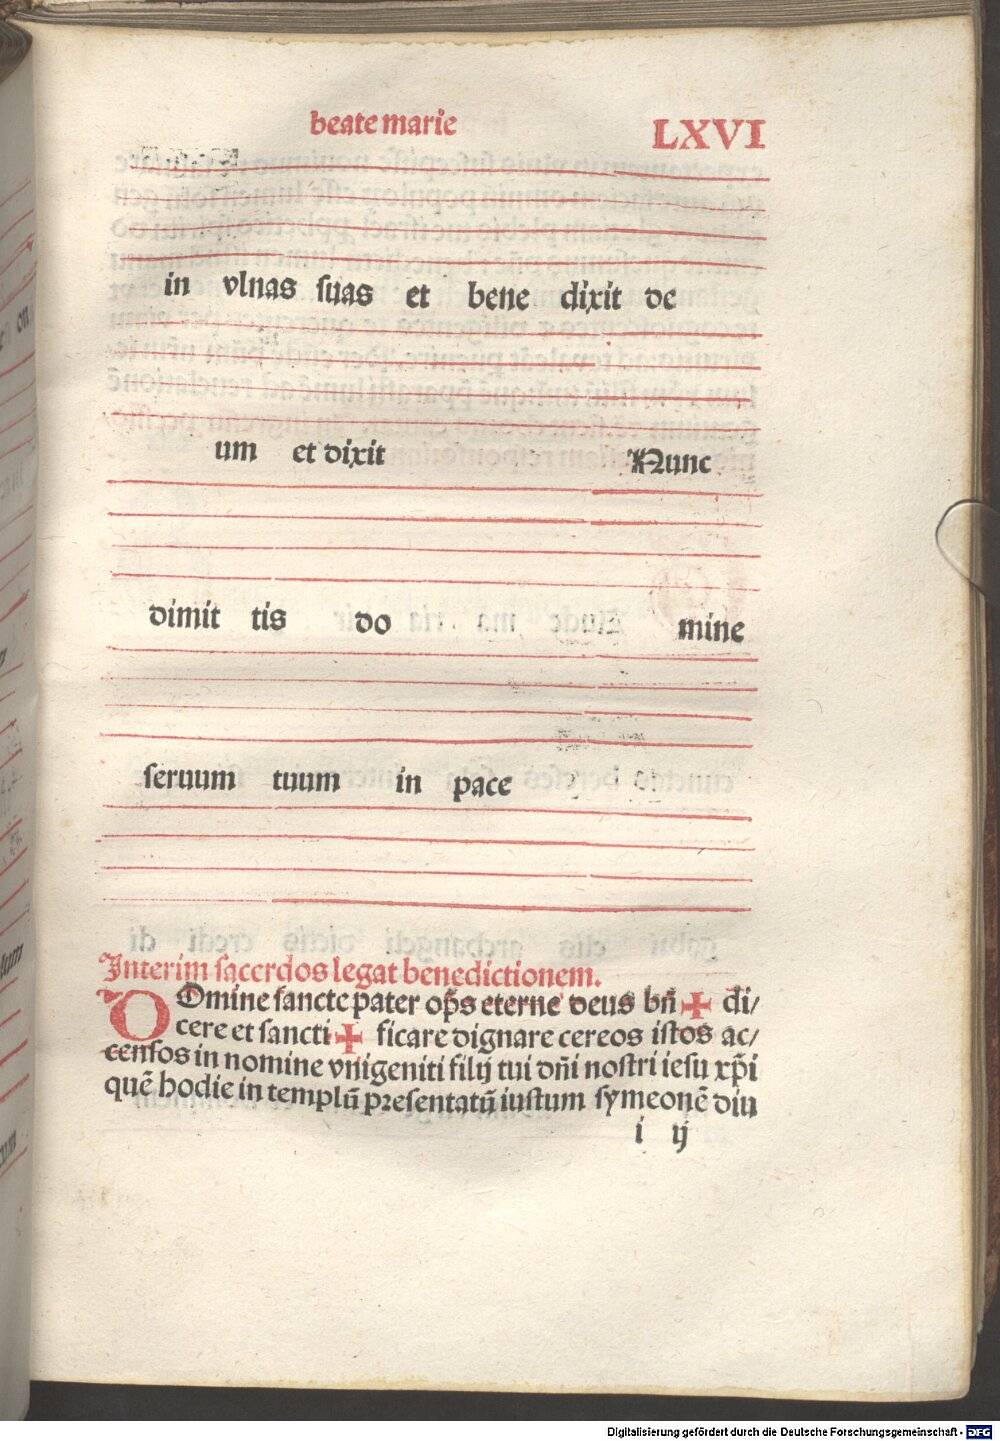 beate marie LXVI
in vlnas suas et bene dixit de
um et dixit Nunc
dimit tis do mine
seruum tuum in pace
Interim sacerdos legat benedictionem.
DOmine sancte pater op̄s eterne deus bn̄ ✠ di/
cere et sancti ✠ ficare dignare cereos istos ac/
censos in nomine vnigeniti filij tui dn̄i nostri iesu xp̄i
quē hodie in templū presentatū iustum symeonē diu
i ij
Digitalisierung gefördert durch die Deutsche Forschungsgemeinschaft - DFG